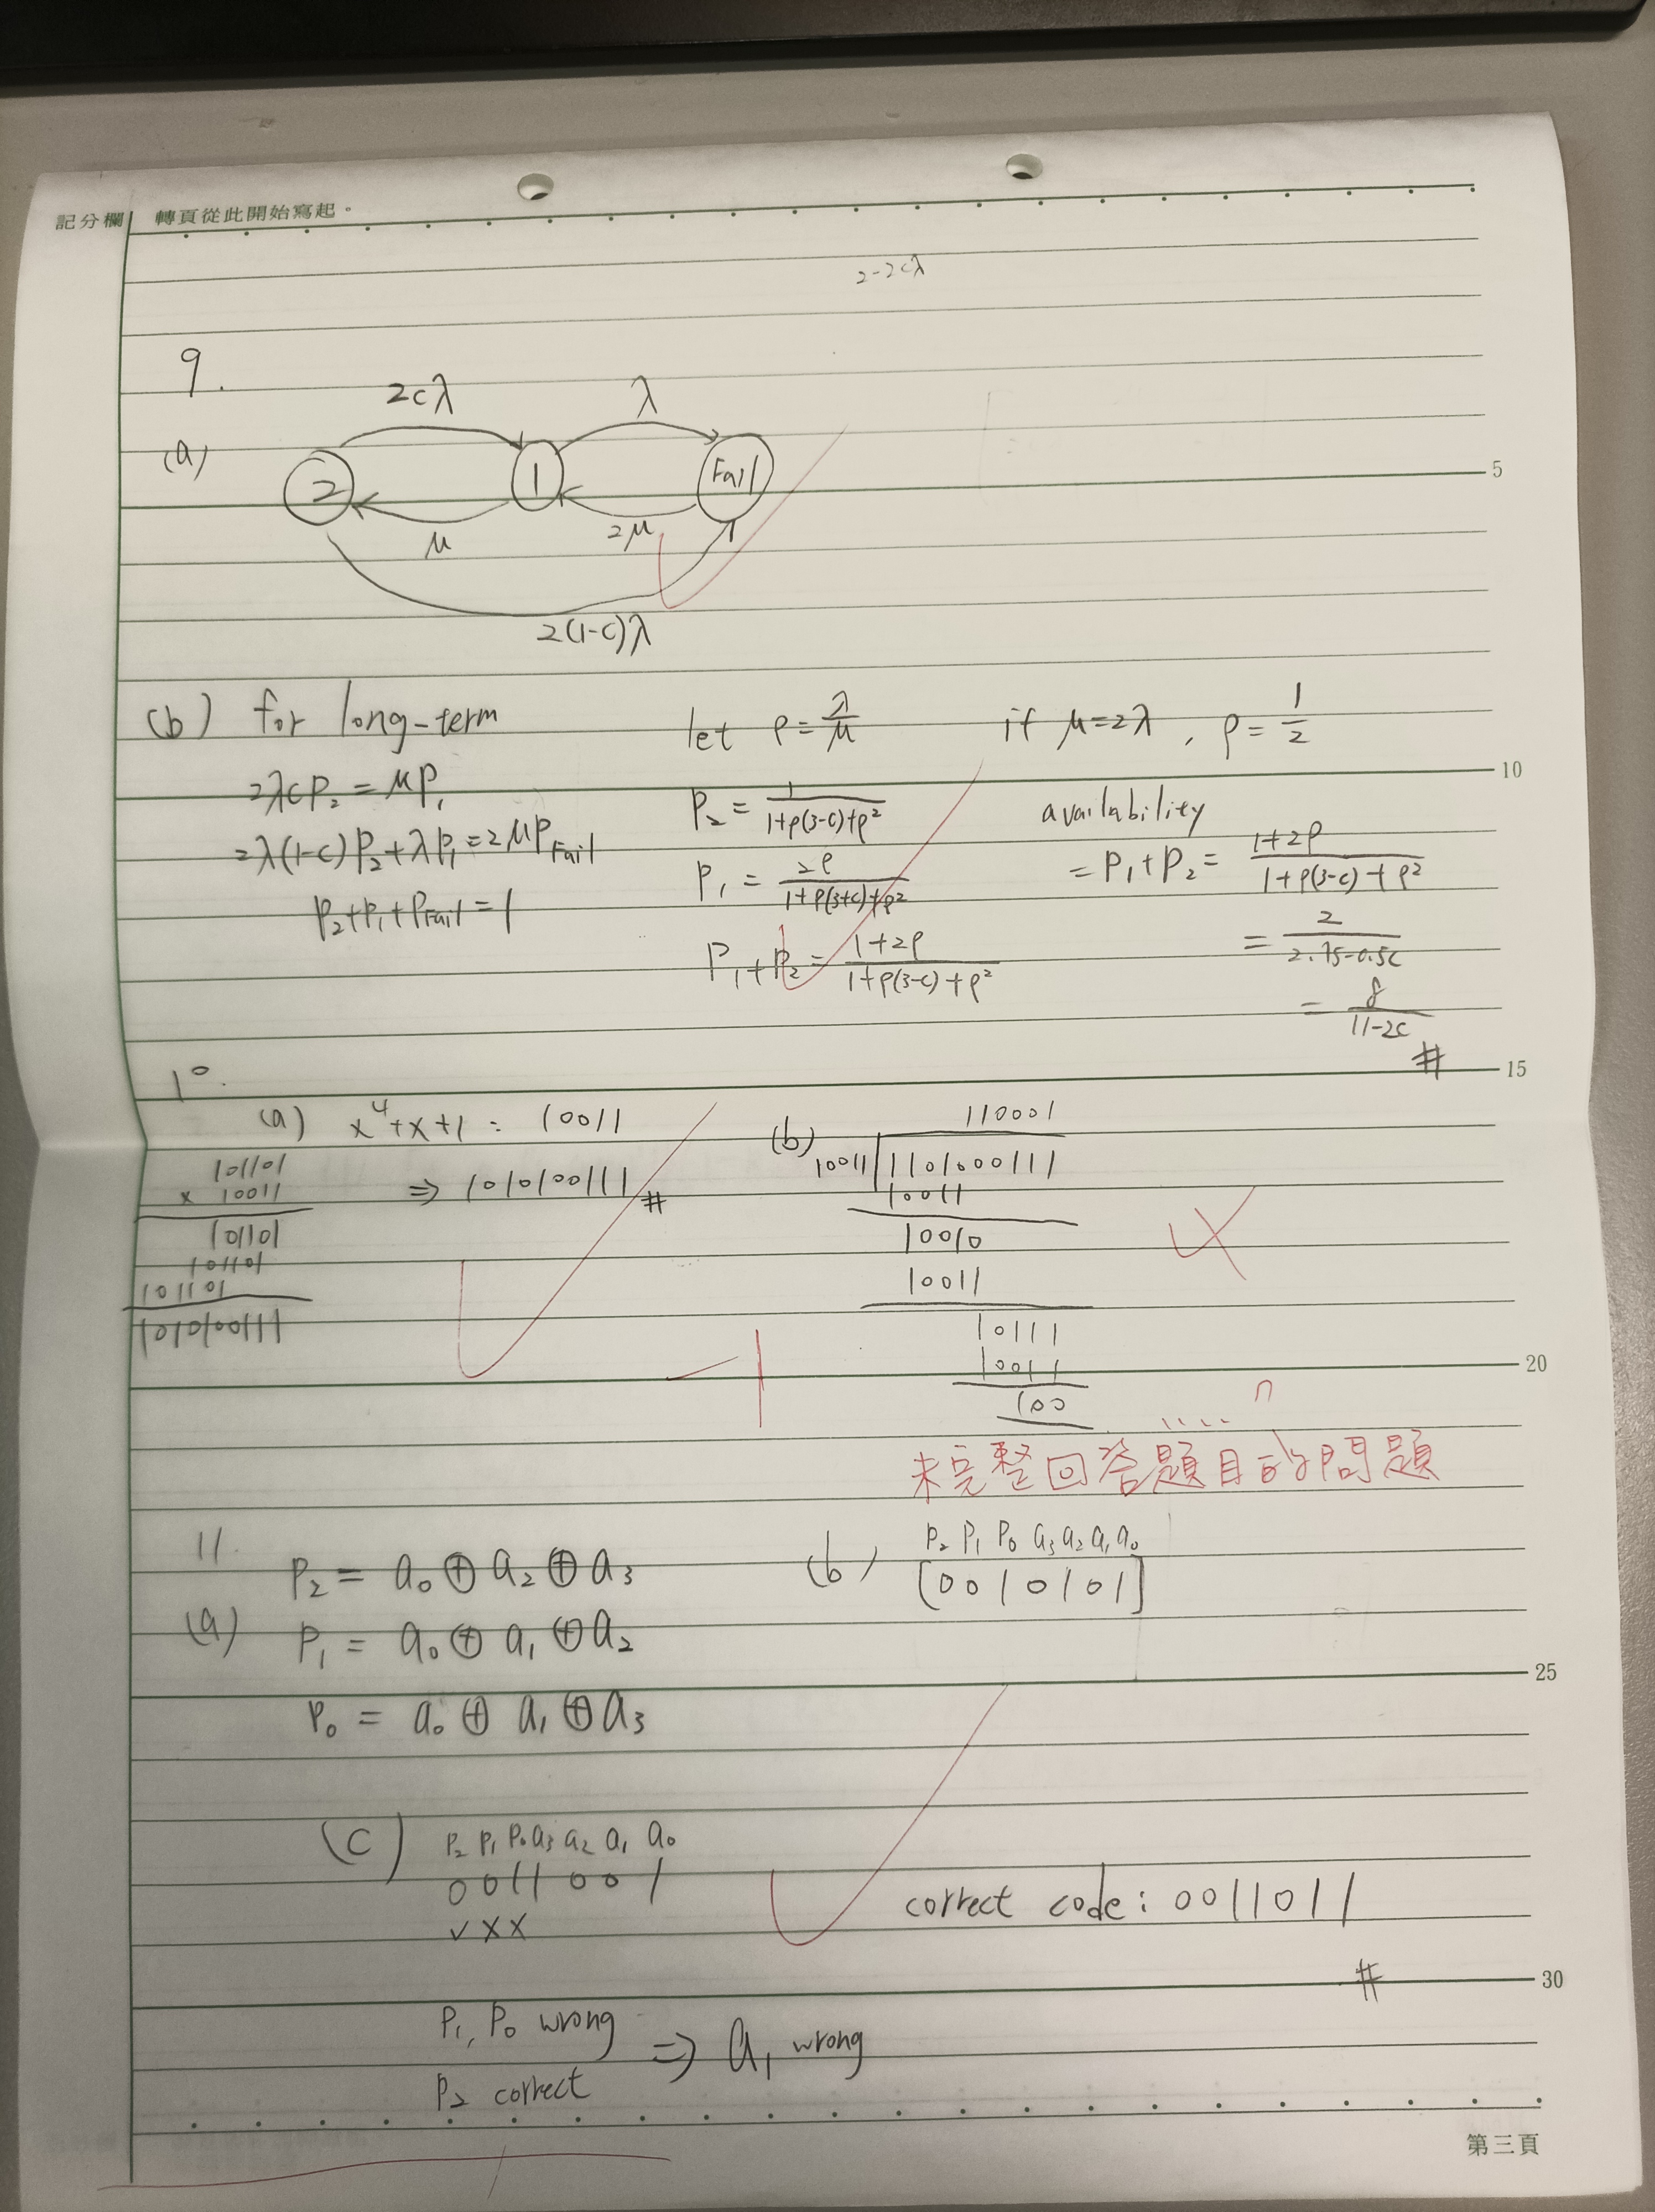 記分欄 轉頁從此開始寫起。
2-2cλ
9.
(a)
2cλ λ
2 1 Fail
μ 2μ
2(1-c)λ
5
(b) for long-term
2λcP₂ = μP₁
2λ(1-c)P₂+λP₁=2μP_Fail
P₂+P₁+P_Fail=1
let ρ = λ/μ
P₂ = 1/(1+ρ(3-c)+ρ²)
P₁ = 2ρ/(1+ρ(3+c)+ρ²)
P₁+P₂ = (1+2ρ)/(1+ρ(3-c)+ρ²)
if μ=2λ, ρ = 1/2
10
availability
= P₁+P₂ = (1+2ρ)/(1+ρ(3-c)+ρ²)
= 2/(2.75-0.5c)
= 8/(11-2c)
#
15
10.
(a) x⁴+x+1 : 10011
101101
x 10011
101101
101101
101101
1010100111
⇒ 1010100111 #
(b)
110001
10011 1101000111
10011
10010
10011
10111
10011
100
20
-1
未完整回答題目的問題
11.
(a)
P₂ = a₀ ⊕ a₂ ⊕ a₃
P₁ = a₀ ⊕ a₁ ⊕ a₂
P₀ = a₀ ⊕ a₁ ⊕ a₃
(b) P₂ P₁ P₀ a₃ a₂ a₁ a₀
[0010101]
25
(c) P₂ P₁ P₀ a₃ a₂ a₁ a₀
0011001
✓XX
correct code: 0011011
#
30
P₁, P₀ wrong
P₂ correct
⇒ a₁ wrong
第三頁